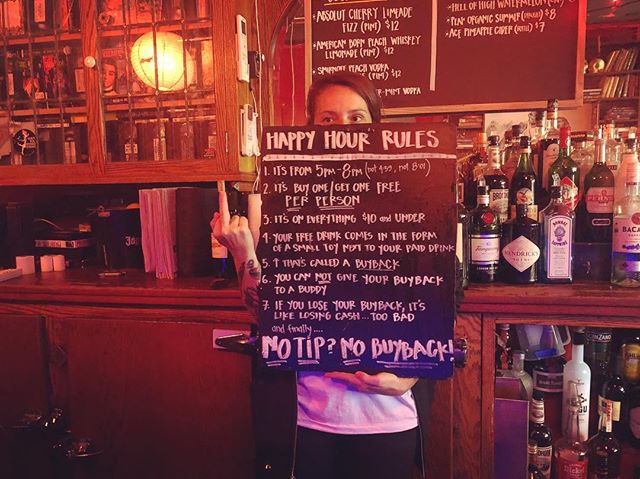 ABSOLUT CHERRY LIMEADE
FIZZ (PINT) $12
AMERICAN BORN PEACH WHISKEY
LEMONADE (PINT) $12
SMIRNOFF PEACH VODKA
(PINT) $12
MINT VODKA
HELL OR HIGH WATERMELON
PEAK ORGANIC SUMMER $8
ACE PINEAPPLE CIDER $7
HAPPY HOUR RULES
1. IT'S FROM 5PM-8PM (not 4:59, not 8:01)
2. IT'S BUY ONE/GET ONE FREE
PER PERSON
3. IT'S ON EVERYTHING $10 and UNDER
4. YOUR FREE DRINK COMES IN THE FORM
OF A SMALL TOY NEXT TO YOUR PAID DRINK
5. ↑ THAT'S CALLED A BUYBACK
6. YOU CAN NOT GIVE YOUR BUYBACK
TO A BUDDY
7. IF YOU LOSE YOUR BUYBACK, IT'S
LIKE LOSING CASH...TOO BAD
and finally....
NO TIP? NO BUYBACK!
HENDRICK'S
BACA